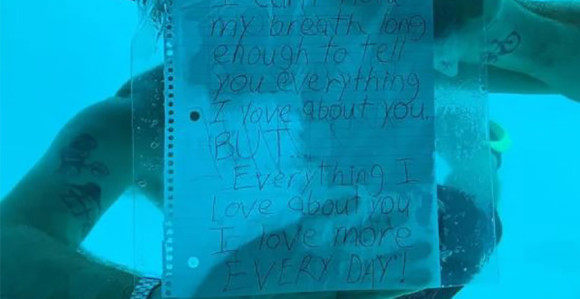 I can't hold
my breath long
enough to tell
you everything
I love about you.
BUT...
Everything I
love about you
I love more
EVERY DAY!